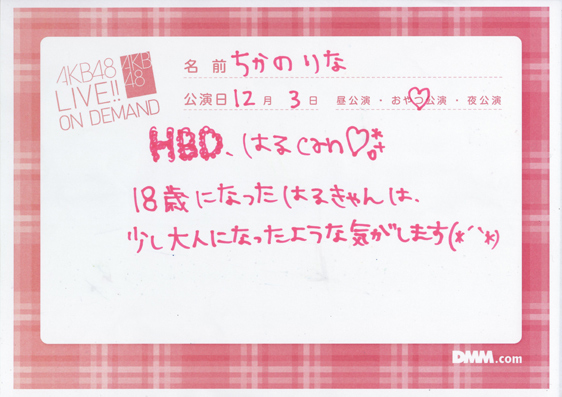 AKB48
LIVE!!
ON DEMAND
AKB
48
名前 ちかのりな
公演日 12月 3日 昼公演・おやつ公演・夜公演
HBD、はるcan♡
18歳になったはるきゃんは、
少し大人になったような気がします(*´`*)
DMM.com